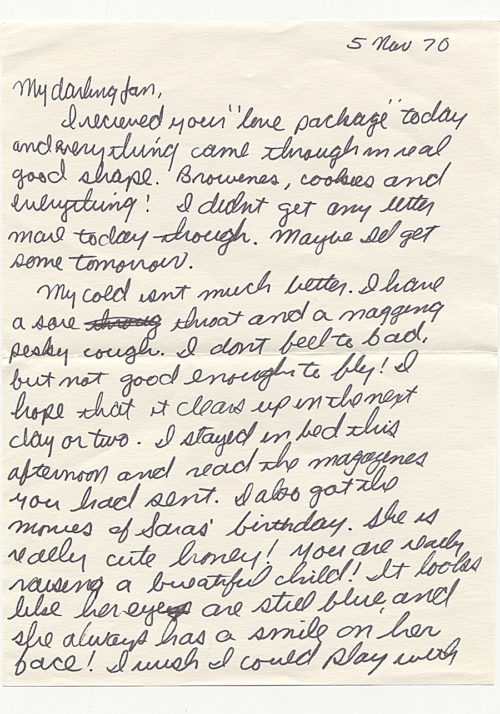 5 Nov 70
My darling Jan,
I recieved your "love package" today
and everything came through in real
good shape. Brownes, cookies and
everything! I didnt get any letter
mail today though. Maybe I'll get
some tomorrow.
My cold isnt much better. I have
a sore throat and a nagging
pesky cough. I dont feel to bad,
but not good enough to fly! I
hope that it clears up in the next
day or two. I stayed in bed this
afternoon and read the magazenes
you had sent. I also got the
movies of Saras' birthday. She is
really cute honey! You are really
raising a bueatiful child! It looks
like her eyes are still blue and
she always has a smile on her
face! I wish I could play with